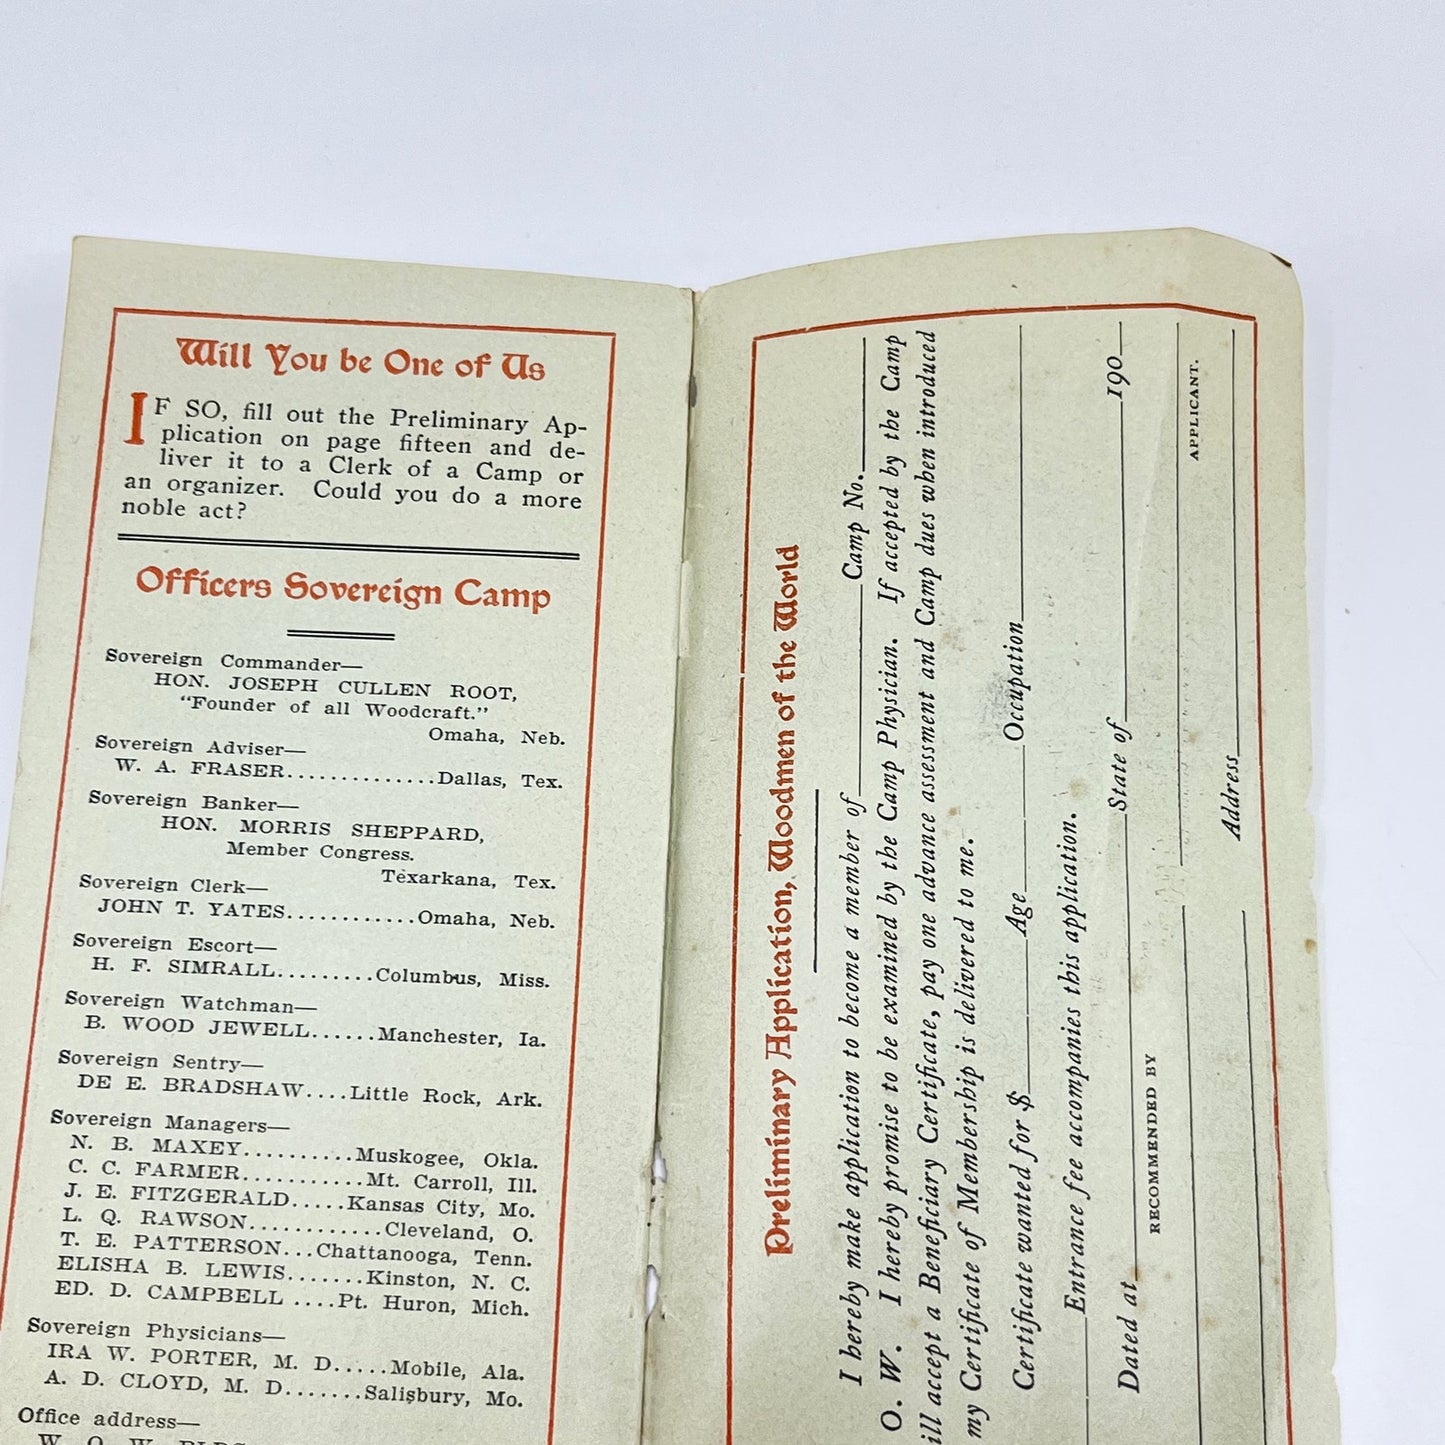 Will You be One of Us
IF SO, fill out the Preliminary Ap-
plication on page fifteen and de-
liver it to a Clerk of a Camp or
an organizer. Could you do a more
noble act?
Officers Sovereign Camp
Sovereign Commander—
HON. JOSEPH CULLEN ROOT,
"Founder of all Woodcraft."
Omaha, Neb.
Sovereign Adviser—
W. A. FRASER..............Dallas, Tex.
Sovereign Banker—
HON. MORRIS SHEPPARD,
Member Congress.
Texarkana, Tex.
Sovereign Clerk—
JOHN T. YATES............Omaha, Neb.
Sovereign Escort—
H. F. SIMRALL.........Columbus, Miss.
Sovereign Watchman—
B. WOOD JEWELL......Manchester, Ia.
Sovereign Sentry—
DE E. BRADSHAW....Little Rock, Ark.
Sovereign Managers—
N. B. MAXEY..........Muskogee, Okla.
C. C. FARMER...........Mt. Carroll, Ill.
J. E. FITZGERALD.....Kansas City, Mo.
L. Q. RAWSON............Cleveland, O.
T. E. PATTERSON...Chattanooga, Tenn.
ELISHA B. LEWIS.......Kinston, N. C.
ED. D. CAMPBELL ....Pt. Huron, Mich.
Sovereign Physicians—
IRA W. PORTER, M. D.....Mobile, Ala.
A. D. CLOYD, M. D.......Salisbury, Mo.
Office address—
W. O. W. BLDG
Preliminary Application, Woodmen of the World
I hereby make application to become a member of Camp No.
O. W. I hereby promise to be examined by the Camp Physician. If accepted by the Camp
ill accept a Beneficiary Certificate, pay one advance assessment and Camp dues when introduced
my Certificate of Membership is delivered to me.
Certificate wanted for $ Age Occupation
Entrance fee accompanies this application.
Dated at State of 190
RECOMMENDED BY
APPLICANT.
Address